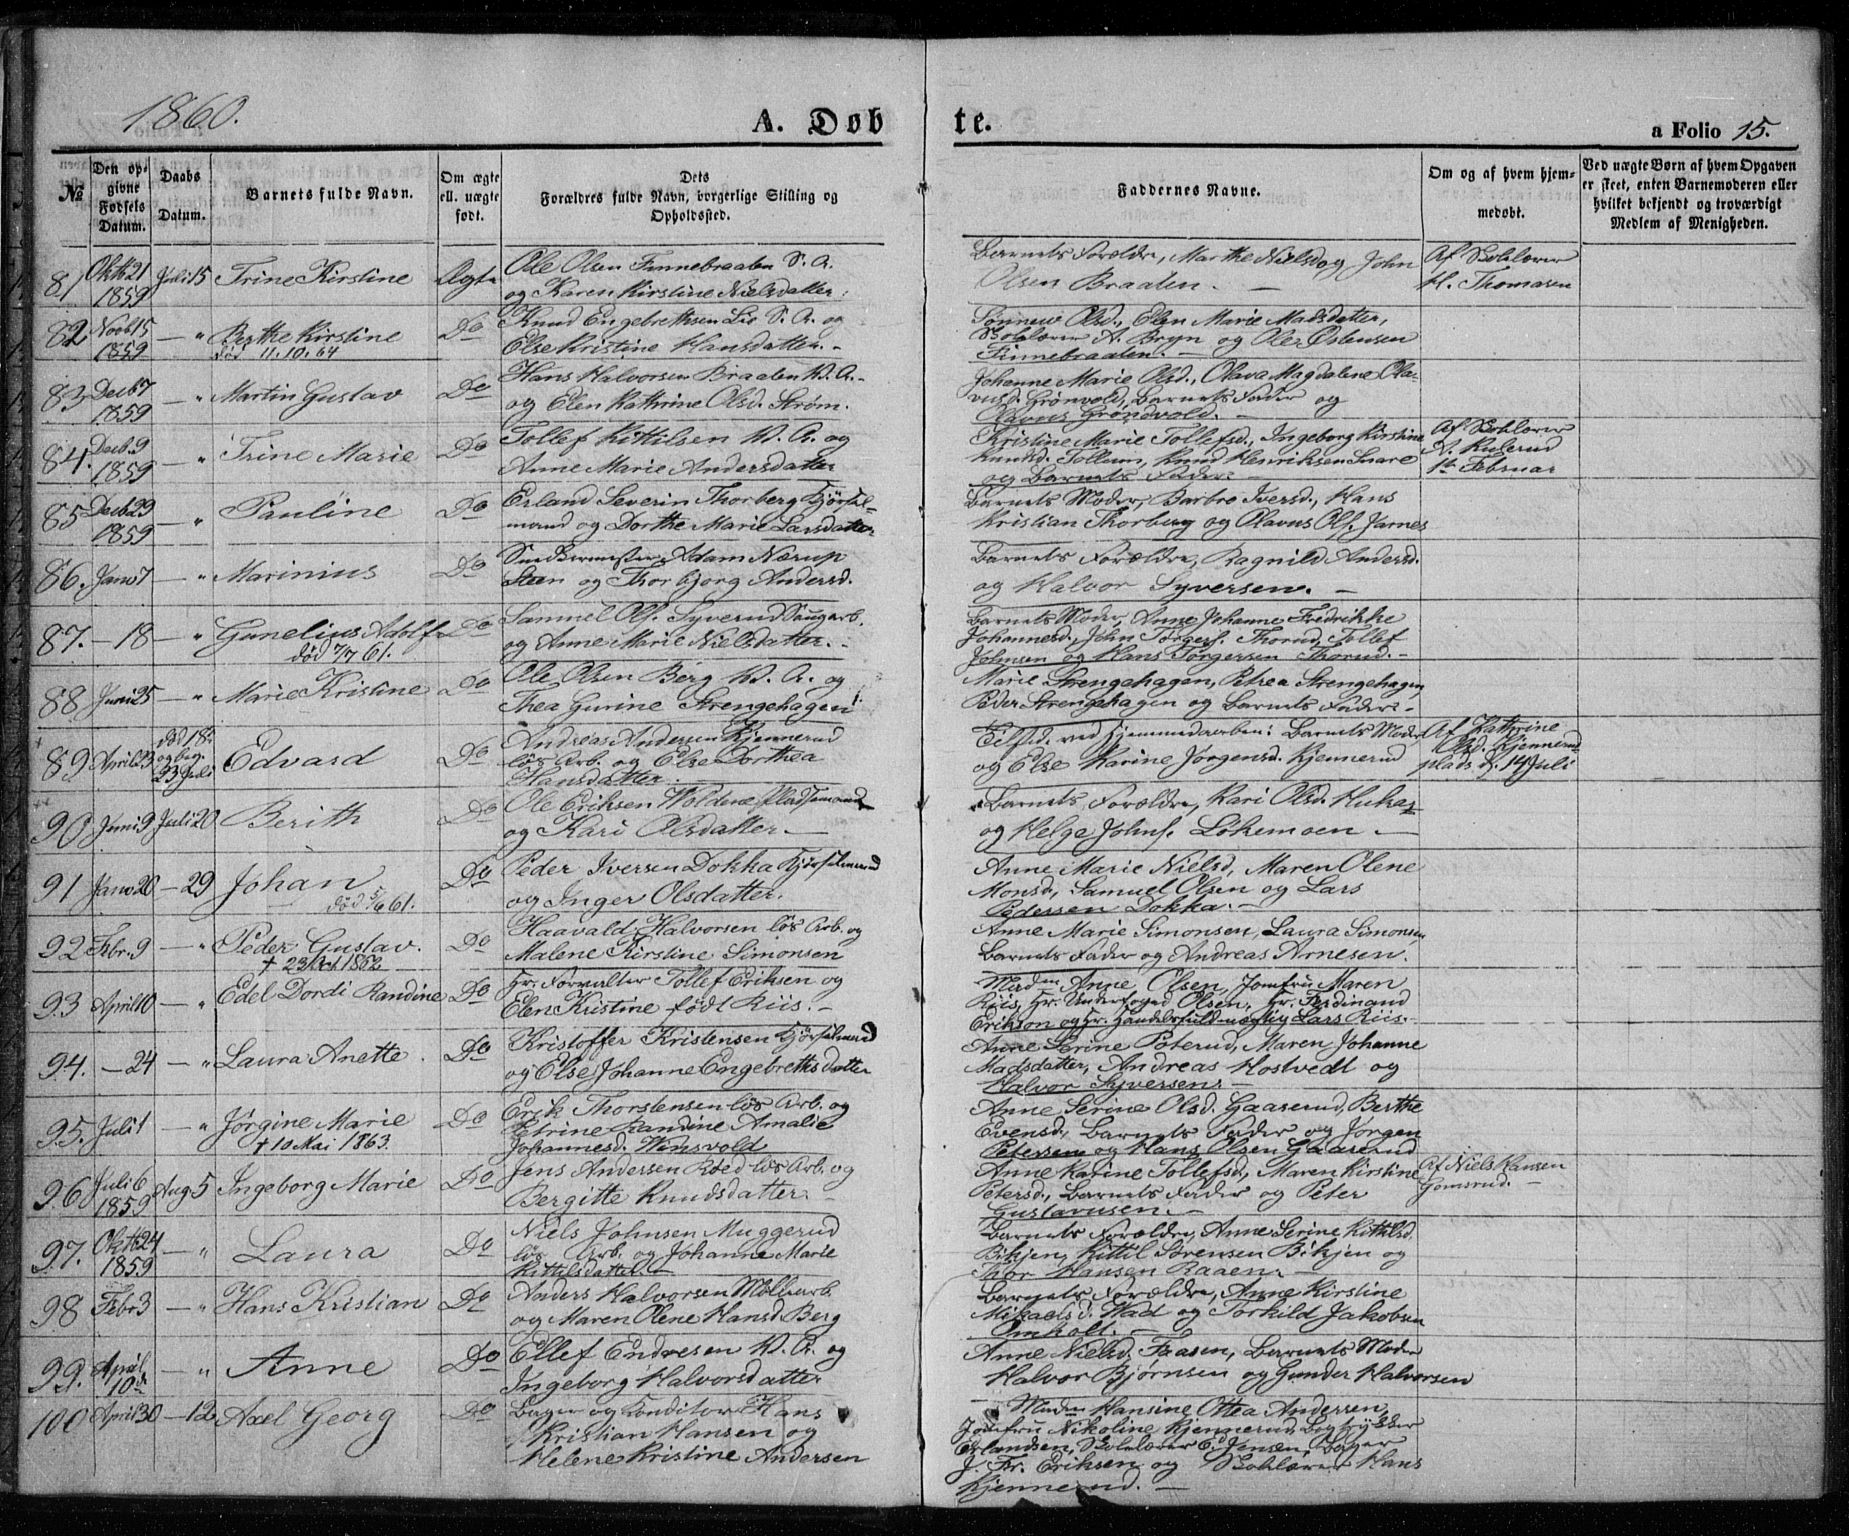 1860.
A. Døb
te.
a Folio 15.
№
Den opgivne Fødsels Datum.
Daabs Datum.
Barnets fulde Navn.
Om ægte ell. uægte født.
Dets Forældres fulde Navn, borgerlige Stilling og Opholdssted.
Faddernes Navne.
Om og af hvem hjemmedøbt.
Ved uægte Børn af hvem Opgaven er skeet, enten Barnemoderen eller hvilket bekjendt og troværdigt Medlem af Menigheden.
81 Oktb 21 1859 Juli 15 Trine Kirstine Ægte
Ole Olsen Finnebraaten S. A.
og Karen Kirstine Nielsdatter.
Barnets Forældre, Marthe Nielsd og John
Olsen Braaten. —
Af Skolelærer
H. Thomasen
82 Novb 15 1859 — " Berthe Kirstine Do
død 11.10.64
Knud Engebrethsen Lie S. A. og
Else Kristine Hansdatter. -
Sønnew Olsd., Elen Marie Madsdatter,
Skolelærer A. Bryn og Ole Østensen
Finnebraaten. —
83 Decb 7 1859 — " Martin Gustav Do
Hans Halvorsen Braaten V. A. -
og Elen Kathrine Olsd. Strøm.
Johanne Marie Olsd., Olava Magdalene Ola-
vusd. Grønvold, Barnets Fader og
Olavus Grøndvold. —
84. Decb 9 1859 — " Trine Marie Do
Tollef Kittilsen V. A. og
Anne Marie Andersdatter
Kristine Marie Tollefsd., Ingeborg Kirstine
Knudsd. Tollum, Knud Henriksen Snare
og Barnets Fader. —
Af Skolelærer
A. Ruserud
1ste Februar
85 Decb 29 1859 — " Pauline Do
Erland Severin Thorberg Kjørsel-
mand og Dorthe Marie Larsdatter
Barnets Moder, Barbro Iversd., Hans
Kristian Thorberg og Olavus Ols. Jarnes
86. Janv 7 — " Marinius Do
Snedkermester Adam Nærup
Steen og Thorbjørg Andersd.
Barnets Forældre, Ragnild Andersd.
og Halvor Syversen. —
87. — 18 — " Gunelius Adolf Do
død 7/7 61.
Samuel Ols. Syverud Saugarb.
og Anne Marie Nielsdatter. -
Barnets Moder, Anne Johanne Fredrikke
Johannesd., John Tørgers. Thorud, Tollef
Johnsen og Hans Tørgersen Thorud. -
88 Juni 25 — " Marie Kristine Do
Ole Olsen Berg V. A. og
Thea Gurine Strengehagen
Marie Strengehagen, Petrea Strengehagen,
Peder Strengehagen og Barnets Fader. -
89 April 23 død 18de og beg. 23 Juli Edvard Do
Andreas Andersen Kjennerud
løs Arb. og Else Dorthea
Hansdatter.
Tilsted. ved Hjemmedaaben: Barnets Moder
og Else Karine Jørgensd. Kjennerud
Af Kathrine
Olsd. Kjennerud
plads d. 14 Juli
90 Juni 9 Juli 20 Berith Do
Ole Eriksen Woldene Pladsemand
og Kari Olsdatter. —
Barnets Forældre, Kari Olsd. Hukas
og Helge Johns. Løkemoen. —
91 Janv 20 — 29 Johan Do
død 5/6 61.
Peder Iversen Dokka Kjørselmand
og Inger Olsdatter.
Anne Marie Nielsd, Maren Olene
Monsd., Samuel Olsen og Lars
Pedersen Dokka. —
92 Febr. 9 — " Peder Gustav. Do
† 23 1862
Haavald Halvorsen løs Arb. og
Malene Kirstine Simonsen
Anne Marie Simonsen, Laura Simonsen,
Barnets Fader og Andreas Arnesen.
93 April 10 — " Edel Dordi Randine Do
Hr. Forvalter Tollef Eriksen og
Elen Kristine født Riis. —
Madm Anne Olsen, Jomfru Maren
Riis, Hr. Underfoged Olsen, Hr. Ferdinand
Erikson og Hr. Handelsfuldmægtig Lars Riis. -
94. — 24 — " Laura Anette. Do
Kristoffer Kristensen Kjørselmand
og Else Johanne Engebrethsdatter
Anne Serine Poterud, Maren Johanne
Madsdatter, Andreas Hostvedt og
Halvor Syversen. —
95. Juli 1 — " Jørgine Marie Do
† 10 Mai 1863.
Erik Thorstensen løs Arb. og
Petrine Randine Amalie
Johannesd. Winsvold
Anne Serine Olsd. Gaaserud, Berthe
Evensd., Barnets Fader og Jørgen
Petersen og Hans Olsen Gaaserud
96. Juli 6 1859 Aug. 5 Ingeborg Marie Do
Jens Andersen Røed løs Arb. og
Bergitte Knudsdatter. —
Anne Karine Tollefsd., Maren Kirstine
Petersd., Barnets Fader og Peter
Gustavusen. —
Af Niels Hansen
Gomsrud. —
97. Oktb 24 1859 — " Laura Do
Niels Johnsen Muggerud
løs Arb. og Johanne Marie
Kittilsdatter. —
Barnets Forældre, Anne Serine Kittilsd
Bikjen, Kittil Sørensen Bikjen og
Thor Hansen Raaen. —
98 Febr 3 — " Hans Kristian Do
Anders Halvorsen Møllearb.
og Maren Olene Hansd Berg
Barnets Forældre, Anne Kirstine
Mikaelsd. Wad og Torkild Jakobsen
Omholt. —
99. April 10de — " Anne Do
Ellef Endresen V. A. og
Ingeborg Halvorsdatter
Anne Nielsd. Faasen, Barnets Moder
Halvor Bjørnsen og Gunder Halvorsen
100 April 30 — 12 Axel Georg Do
Bager og Konditor Hans
Kristian Hansen og
Helene Kristine Andersen
Madm Hansine Ottea Andersen,
Jomfru Nikoline Kjennerud, Bogtrykker
Erlandsen, Skolelærer C. Jensen, Bager
J. Fr. Eriksen og Skolelærer Hans
Kjennerud. —